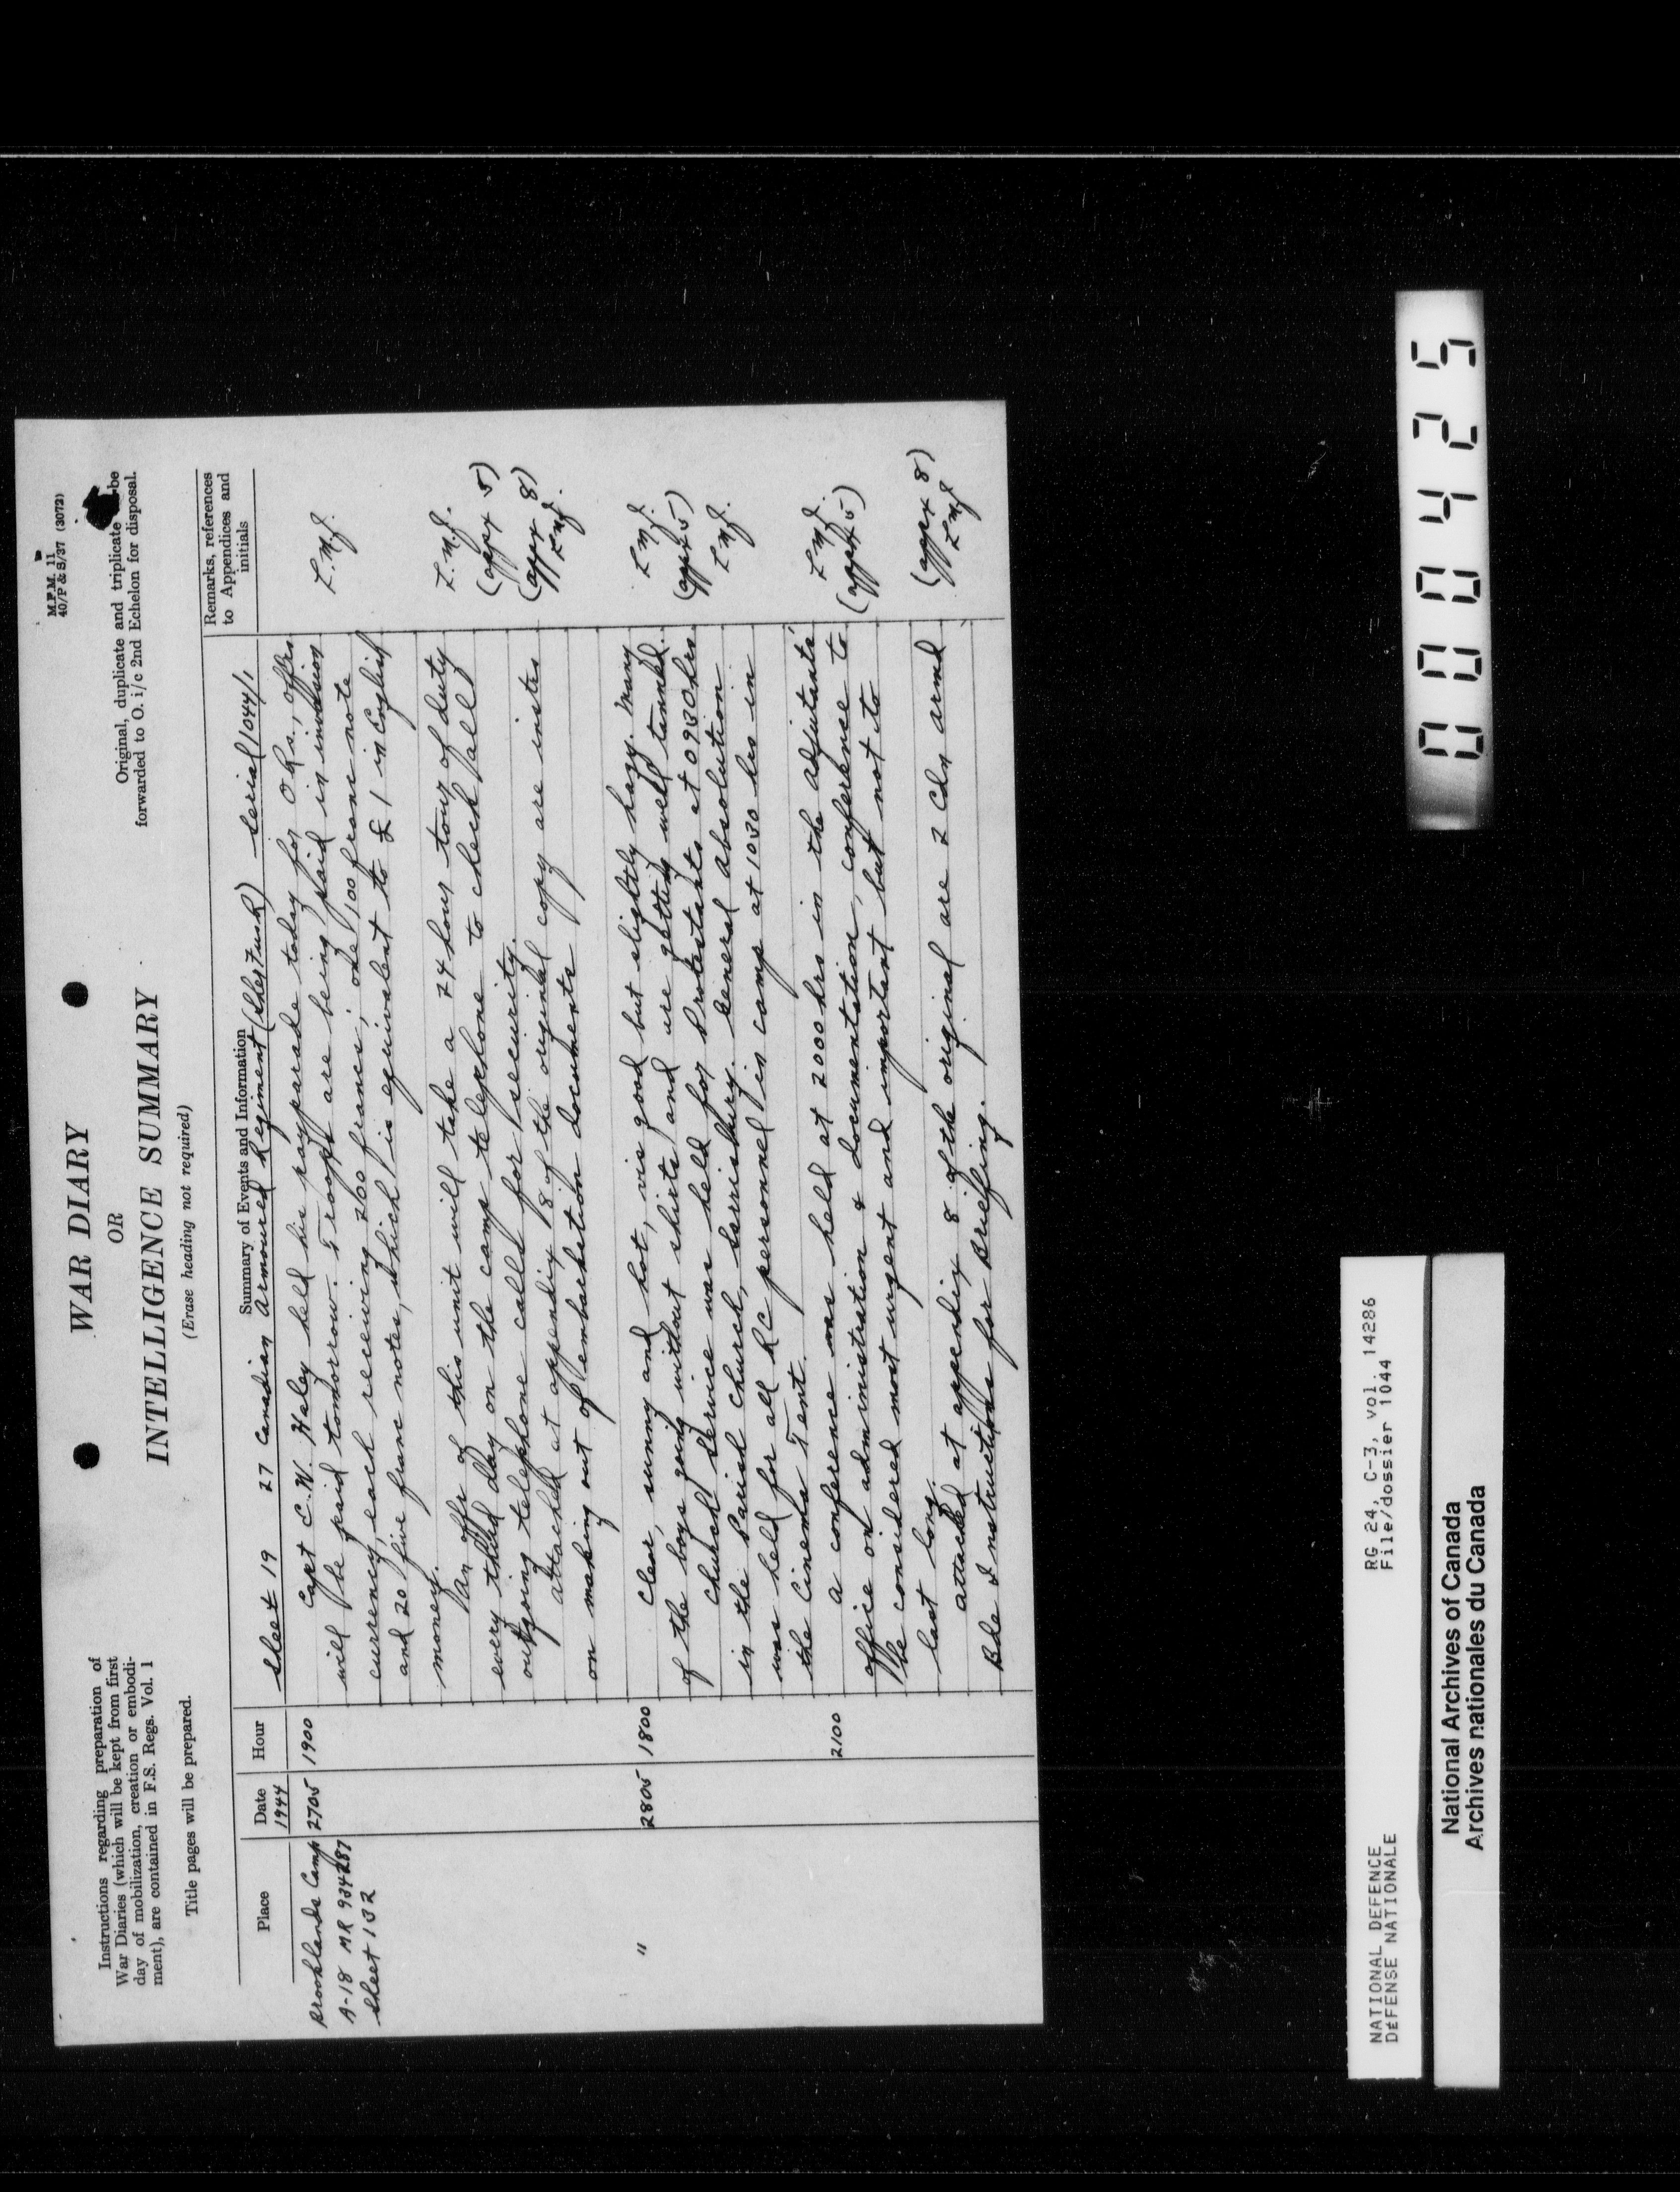 M.F.M. 11
40/P & S/37 (3072)
Instructions regarding preparation of
War Diaries (which will be kept from first
day of mobilization, creation or embodi-
ment), are contained in F.S. Regs. Vol. 1
Title pages will be prepared.
WAR DIARY
OR
INTELLIGENCE SUMMARY
(Erase heading not required)
Original, duplicate and triplicate be
forwarded to O. i/c 2nd Echelon for disposal.
Place
Date
1944
Hour
Summary of Events and Information
Remarks, references
to Appendices and
initials
Sheet 19 27 Canadian Armoured Regiment (Sher Fus R) Serial 1044/1
Brooklands Camp 2705 1900 Capt C.W. Haley held his pay parade today for ORs, offrs
A-18 MR 934287 will be paid tomorrow. Troops are being paid in invasion L.M.J.
Sheet 132 currency, each receiving 200 francs; one 100 franc note
and 20 five franc notes, which is equivalent to £1 in English
money.
An offr of this unit will take a 24 hour tour of duty L.M.J.
every third day on the camp telephone to check all (appx 5)
outgoing telephone calls for security.
attached at appendix 8 of the original copy are instrs (appx 8)
on making out of embarkation documents L.M.J.
" 2805 1800 Clear, sunny and hot, vis good but slightly hazy. Many L.M.J.
of the boys going without shirts and are getting well tanned. (appx 5)
Church service was held for Protestants at 0930 hrs L.M.J.
in the Parish church, Sarrisbury. General Absolution
was held for all RC personnel in camp at 1030 hrs in
the Cinema Tent.
2100 A conference was held at 2000 hrs in the adjutants' L.M.J.
office on administration & documentation, conference to (appx 5)
be considered most urgent and important but not to
last long.
attached at appendix 8 of the original are 2 Cdn Armd (appx 8)
Bde Instructions for Briefing. L.M.J.
000425
NATIONAL DEFENCE RG 24, C-3, vol. 14286
DÉFENSE NATIONALE File/dossier 1044
National Archives of Canada
Archives nationales du Canada